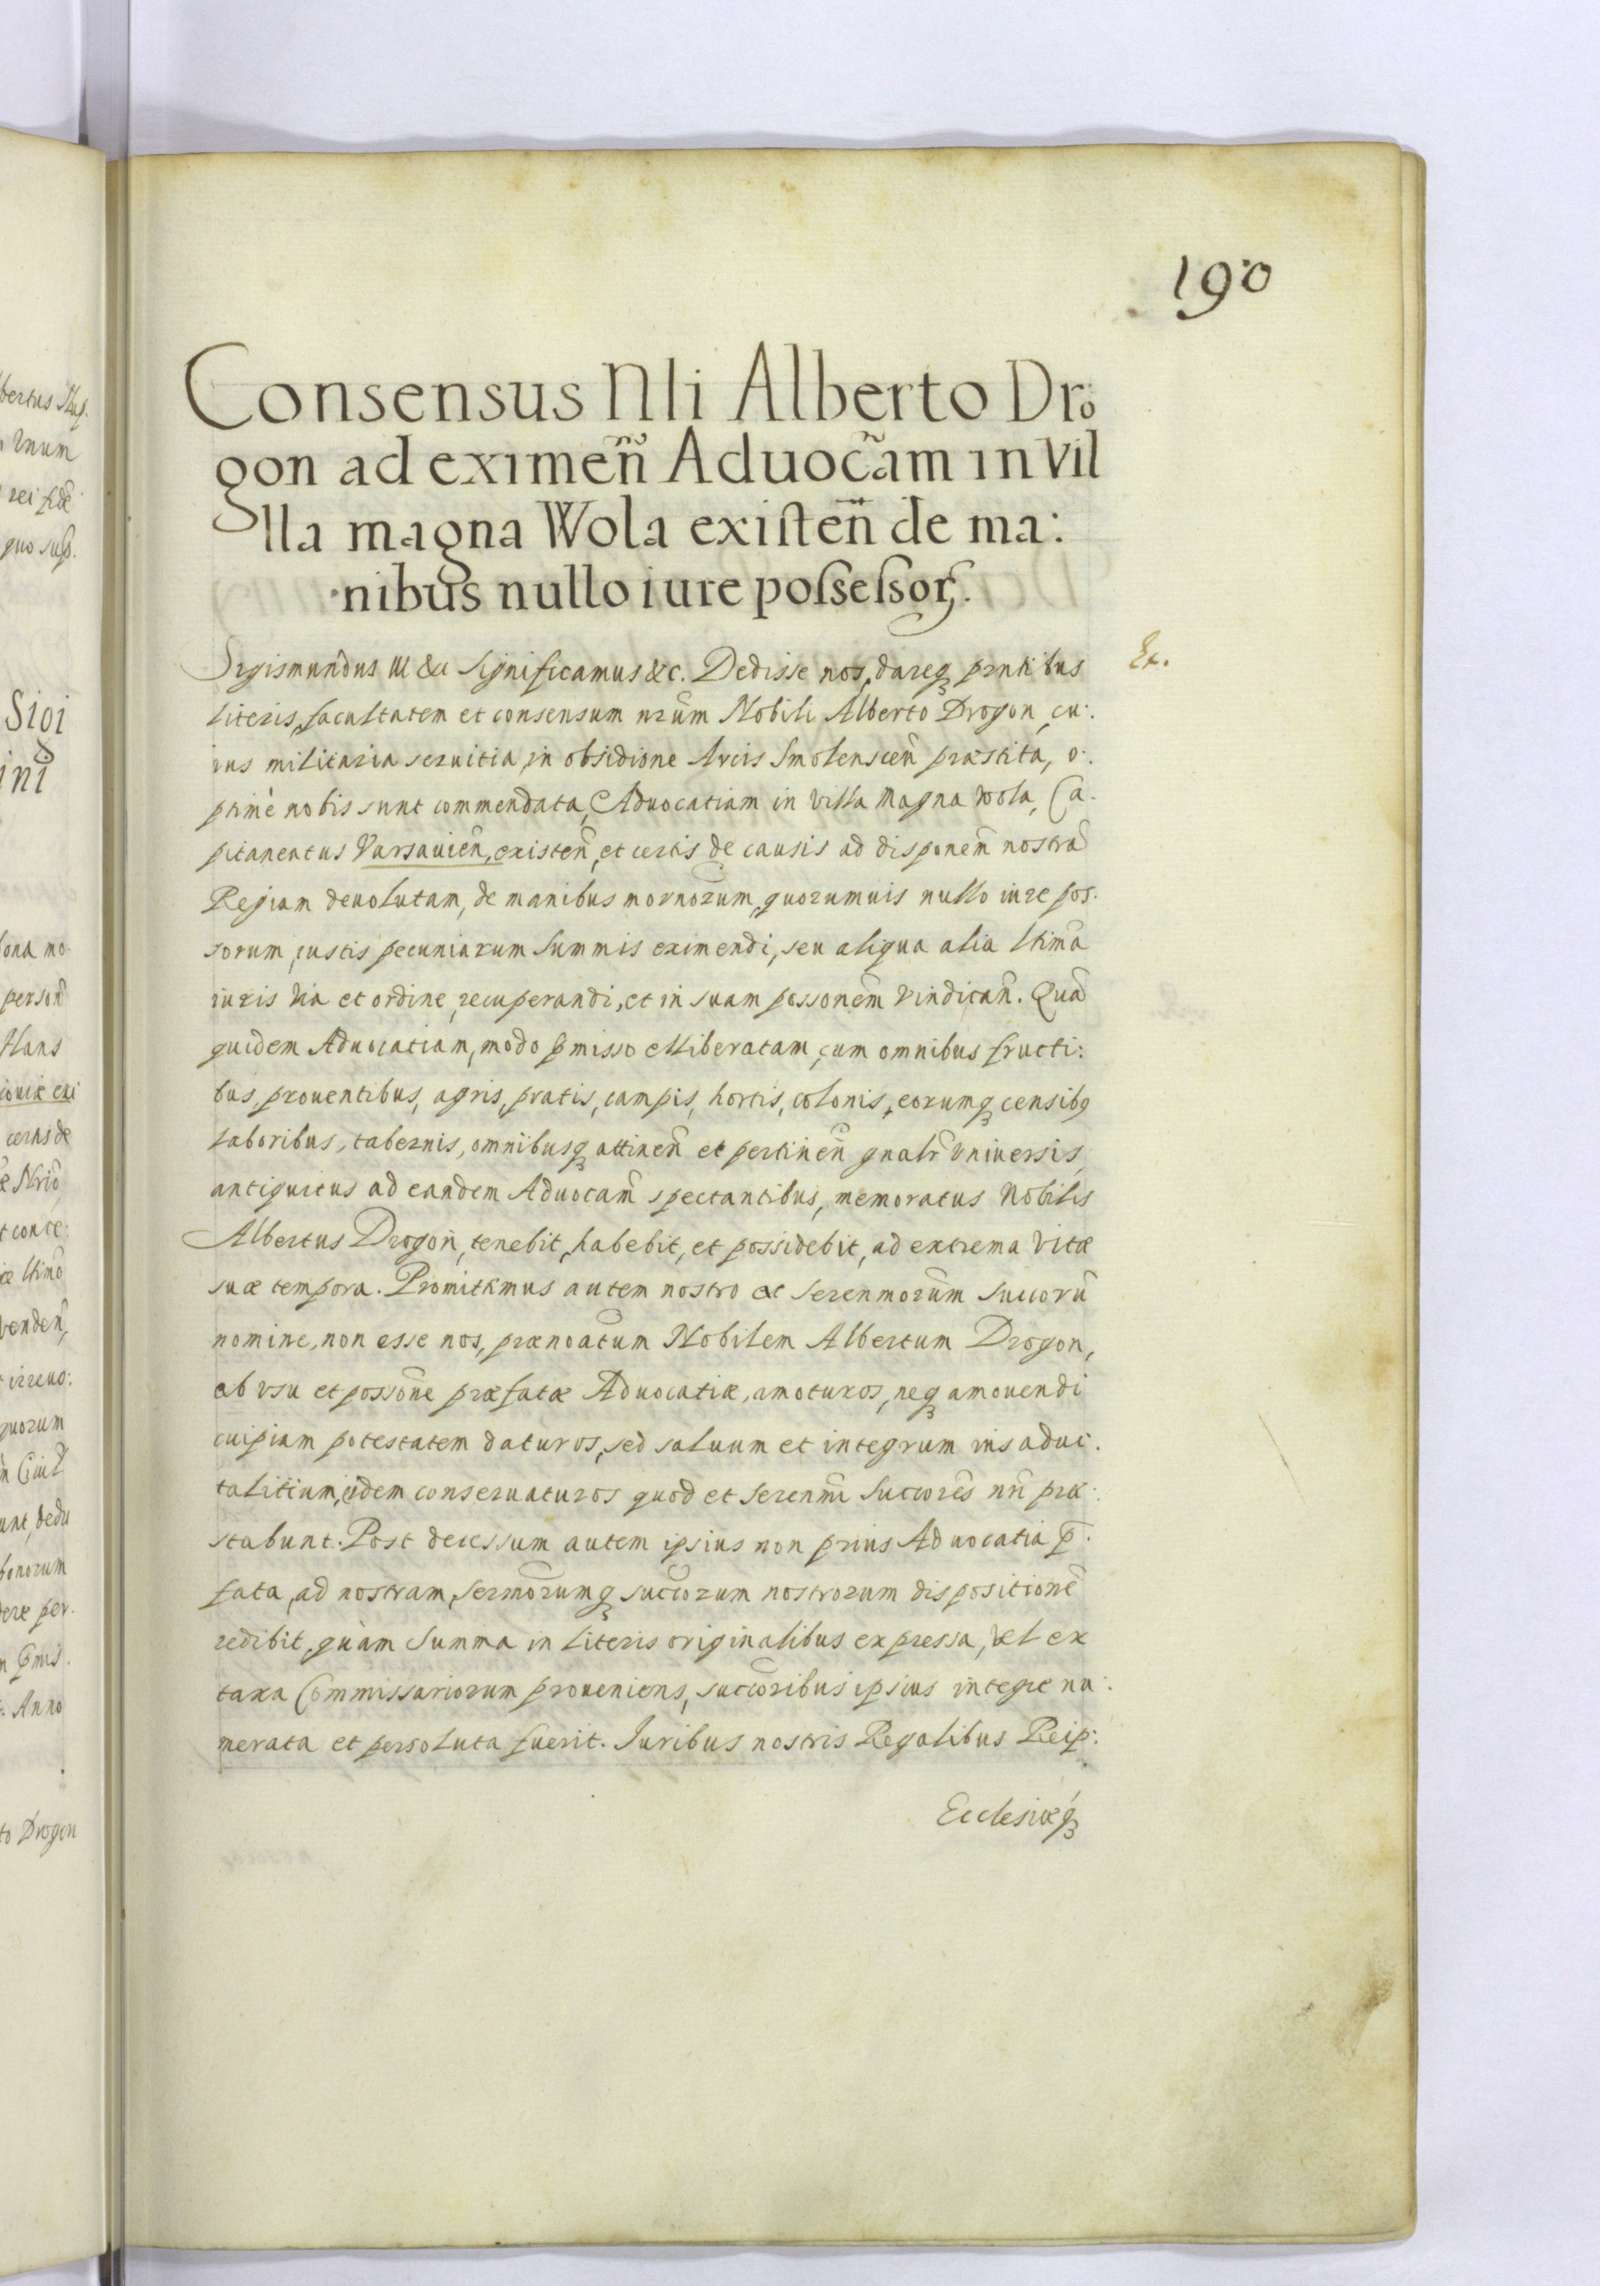 190
Consensus Nli Alberto Dro
gon ad eximen̄ Aduoc̃am in Vil
lla magna Wola existen̄ de ma:
nibus nullo iure possessor̨.
Sigismundus III &c Significamus &c. Dedisse nos, dareq prntibus
Ex.
literis, facultatem et consensum nrũm Nobili Alberto Drogon, cu:
ius militaria seruitia, in obsidione Arcis Smolenscen̄ præstita, o:
ptimè nobis sunt commendata, Aduocatiam in Villa Magna Wola, Ca-
pitaneatus Varsauien̄, existen̄, et certis de causis ad disponem̃ nostrã
Regiam deuolutam, de manibus mornorum, quorumuis nullo iure pos-
sorum, iustis pecuniarum summis eximendi, seu aliqua alia ltimã
iuris via et ordine, recuperandi, et in suam possonem̃ vindican̄. Quã
quidem Aduocatiam, modo p̃misso elliberatam, cum omnibus fructi:
bus, prouentibus, agris, pratis, campis, hortis, colonis, eorumq censibq
laboribus, tabernis, omnibusq attinen̄ et pertinen̄ gnalr̃ vniversis,
antiquitus ad eandem Aduocam̃ spectantibus, memoratus Nobilis
Albertus Drogon, tenebit, habebit, et possidebit, ad extrema vitæ
suæ tempora. Promittimus autem nostro et Serenmorum̃ Succorũ
nomine, non esse nos, prænoatum̃ Nobilem Albertum Drogon,
ab vsu et possõne præfatæ Aduocatiæ, amoturos, neq amouendi
cuipiam potestatem daturos, sed saluum et integrum ius adui:
talitium, eidem conseruaturos quod et Serenmi Succores nri præ:
stabunt. Post decessum autem ipsius non prius Aduocatia p̃:
fata, ad nostram, Sermõrumq succorum nostrorum dispositionẽ
redibit, quàm Summa in literis originalibus expressa, vel ex
taxa Commissariorum proueniens, succoribus ipsius integre nu:
merata et persoluta fuerit. Iuribus nostris Regalibus Reip:
Ecclesiæq